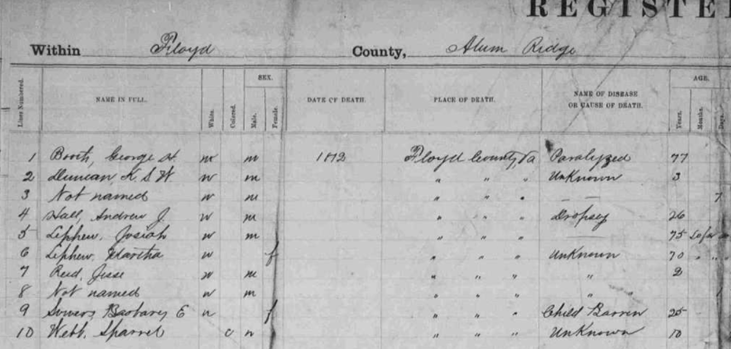 REGISTE
Within Floyd County, Alum Ridge
SEX. AGE.
Lines Numbered. NAME IN FULL. White. Colored. Male. Female. DATE OF DEATH. PLACE OF DEATH. NAME OF DISEASE OR CAUSE OF DEATH. Years. Months. Days.
1 Booth, George H. w m Floyd County, Va Paralyzed 77
2 Duncan, K. S. W. w m " " " Unknown 3
3 Not named w m " " " 7
4 Hall, Andrew J. w m " " " Dropsy 26
5 Lephew, Josiah w m " " " 75
6 Lephew, Martha w f " " " Unknown 70
7 Reed, Jesse w m " " " " 2
8 Not named w m " " " "
9 Sowers Barbary E w f " " " Child Barrin 25
10 Webb, Sparrel c m " " " Unknown 10